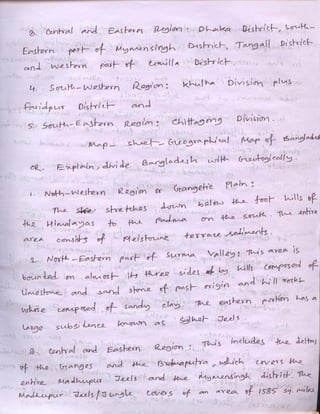 3. Central and Eastern Region: Dhaka District, South-
Eastern part of Mymensingh District, Tangail District
and western part of Comilla District.
4. South-Western Region: Khulna Division plus
Faridpur District and
5. South-Eastern Region: Chittagong Division.
Map - sheet - Geographical Map of Bangladesh
OR, Explain, divide Bangladesh with Geologically.
1. North-Western Region or Geangetic Plain:
The stretches down below the foot hills of
the Himalayas to the Padma on the south. The entire
area consists of Pleistocene terrace sediments.
2. North-Eastern part of Surma Valley: This area is
bounded on almost its three sides by hills composed of
limestone and sand stone of past origin and hill rocks
whose composed of sandy clay. The eastern portion has a
large subsidence known as Sylhet Jeels.
3. Central and Eastern Region: This includes the deltas
of the Ganges and the Brahmaputra, which covers the
entire Madhupur Jeels and the Mymensingh district. The
Madhupur Jeels/Jungle covers of an area of 1585 sq. miles